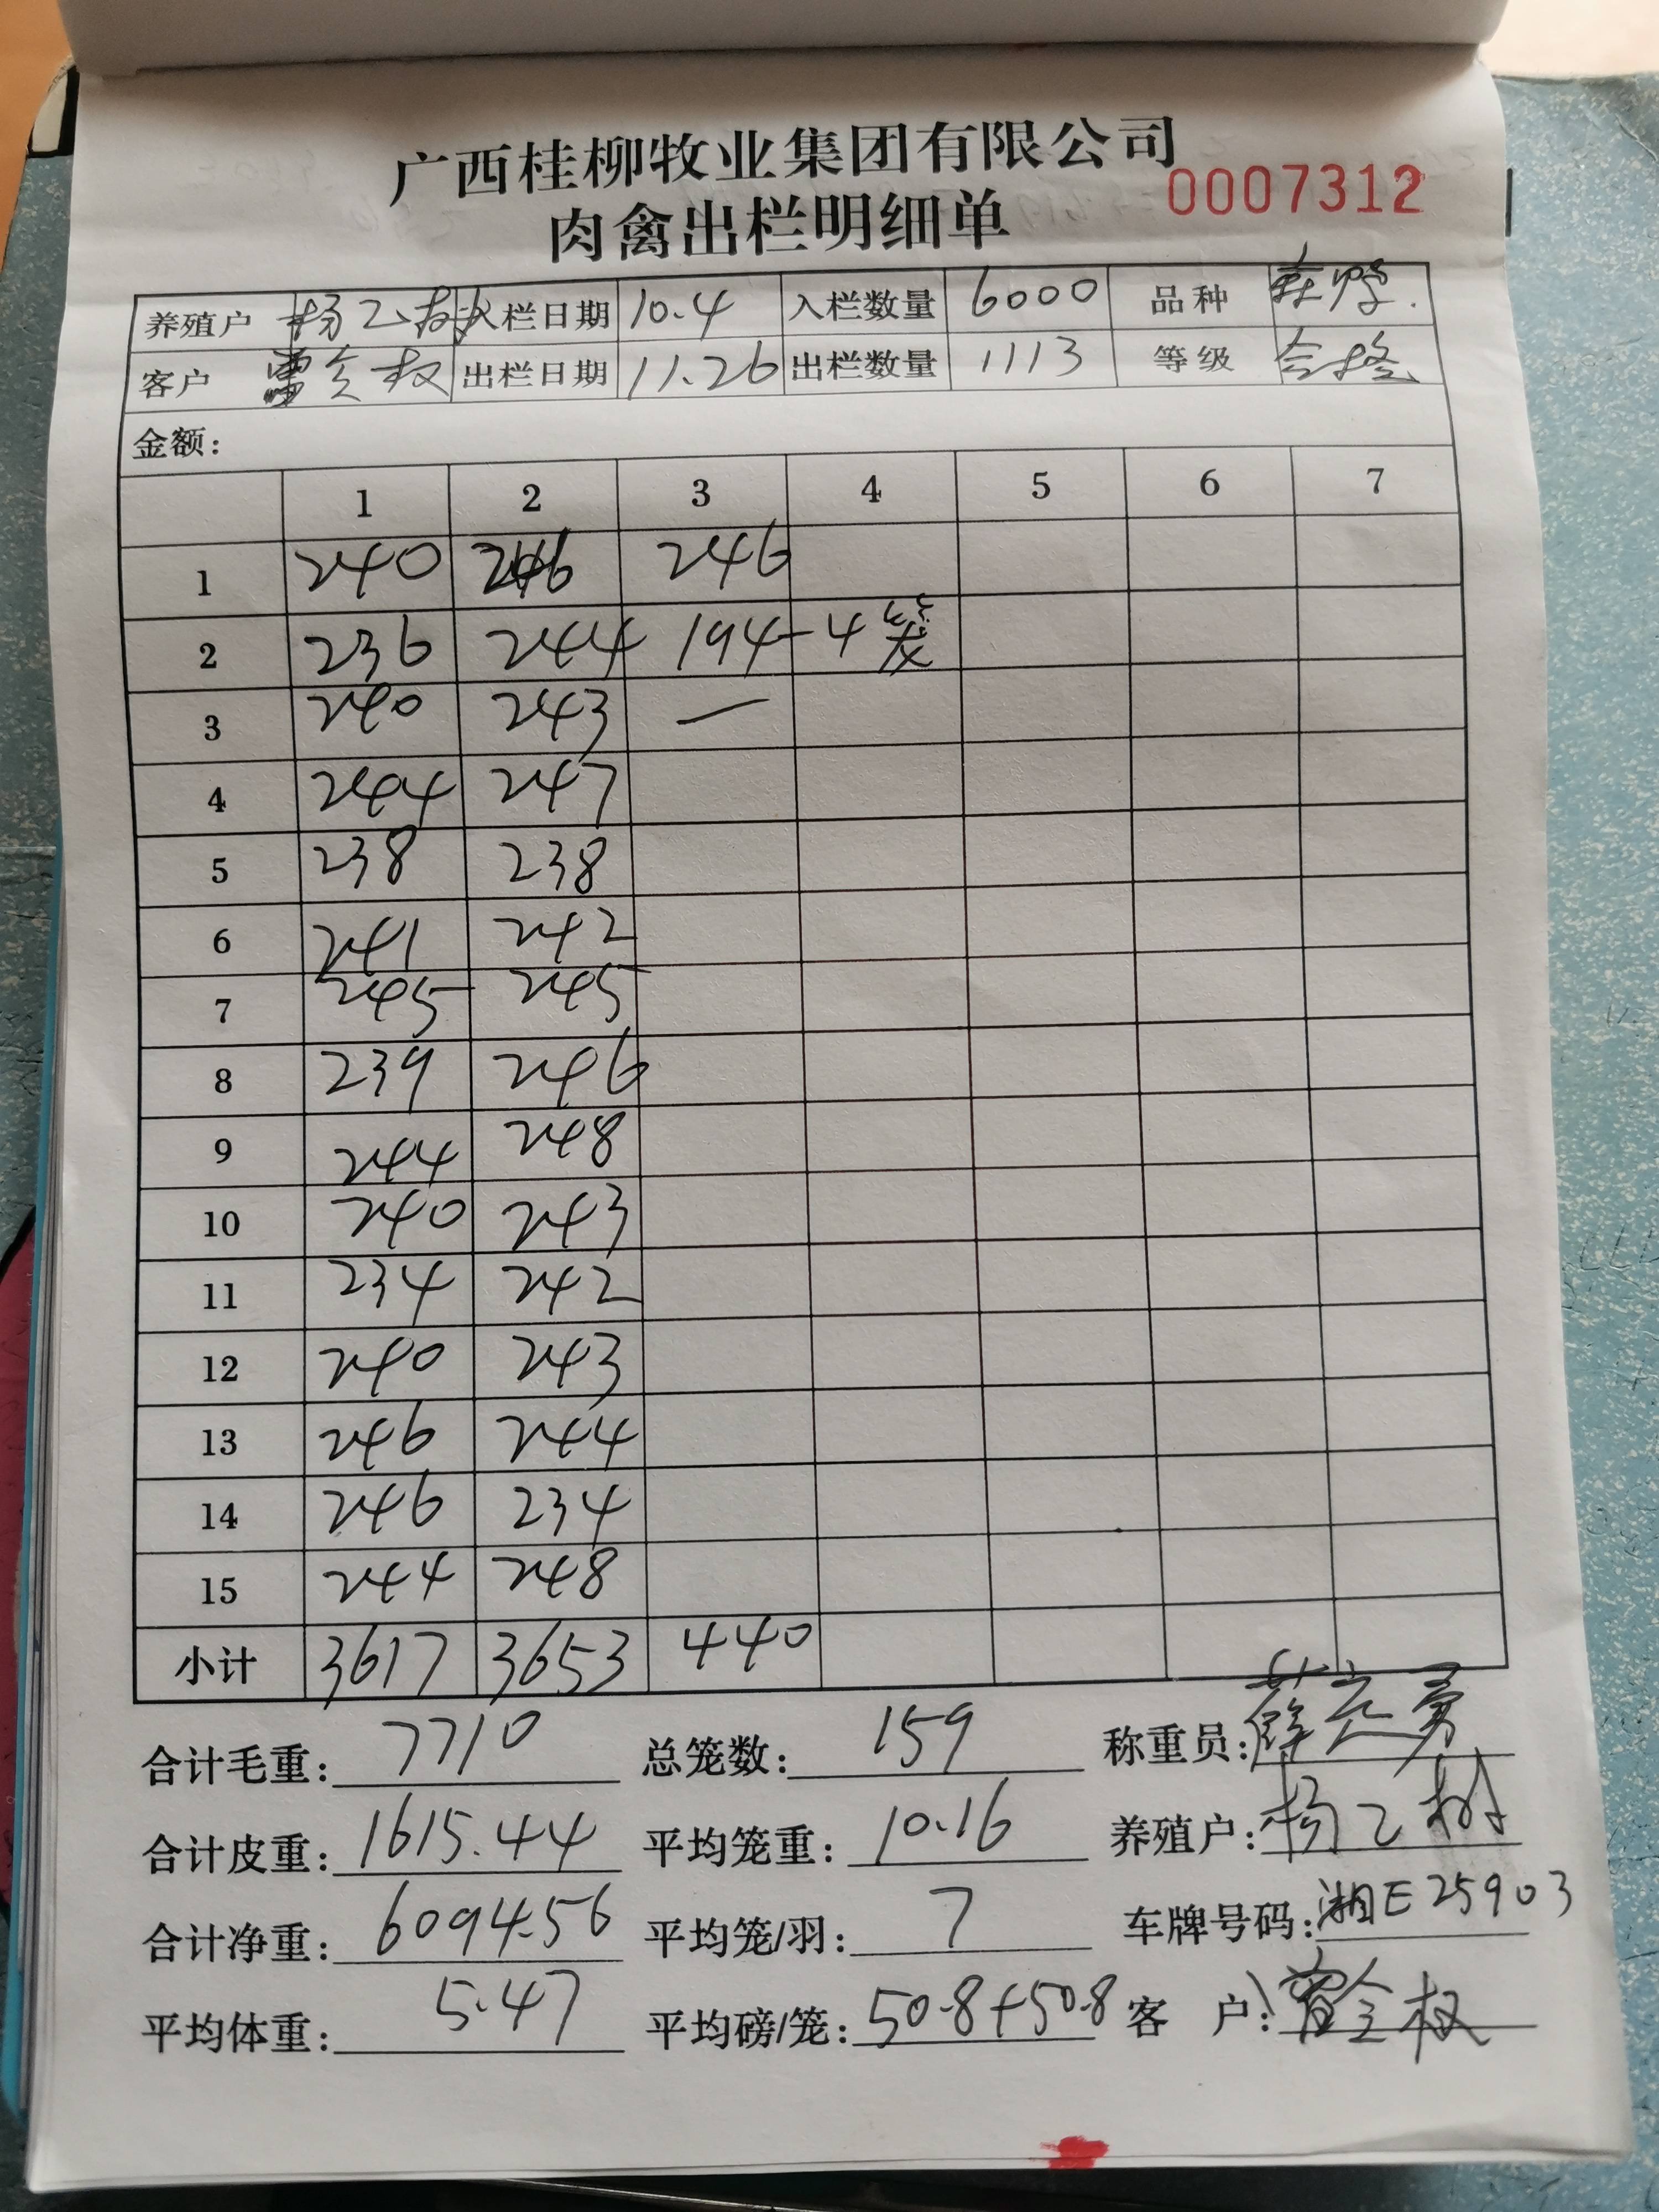 广西桂柳牧业集团有限公司
肉禽出栏明细单 0007312
养殖户 杨乙树 入栏日期 10.4 入栏数量 6000 品种
客户 全权 出栏日期 11.26 出栏数量 1113 等级 合格
金额:
1 2 3 4 5 6 7
1 240 246 246
2 236 244 194-4笼
3 240 243 —
4 244 247
5 238 238
6 241 242
7 245 245
8 239 246
9 244 248
10 240 243
11 234 242
12 240 243
13 246 244
14 246 234
15 244 248
小计 3617 3653 440
合计毛重: 7710 总笼数: 159 称重员: 薛
合计皮重: 1615.44 平均笼重: 10.16 养殖户: 杨乙树
合计净重: 6094.56 平均笼/羽: 7 车牌号码: 湘E25903
平均体重: 5.47 平均磅/笼: 50.8+50.8 客 户: 全权